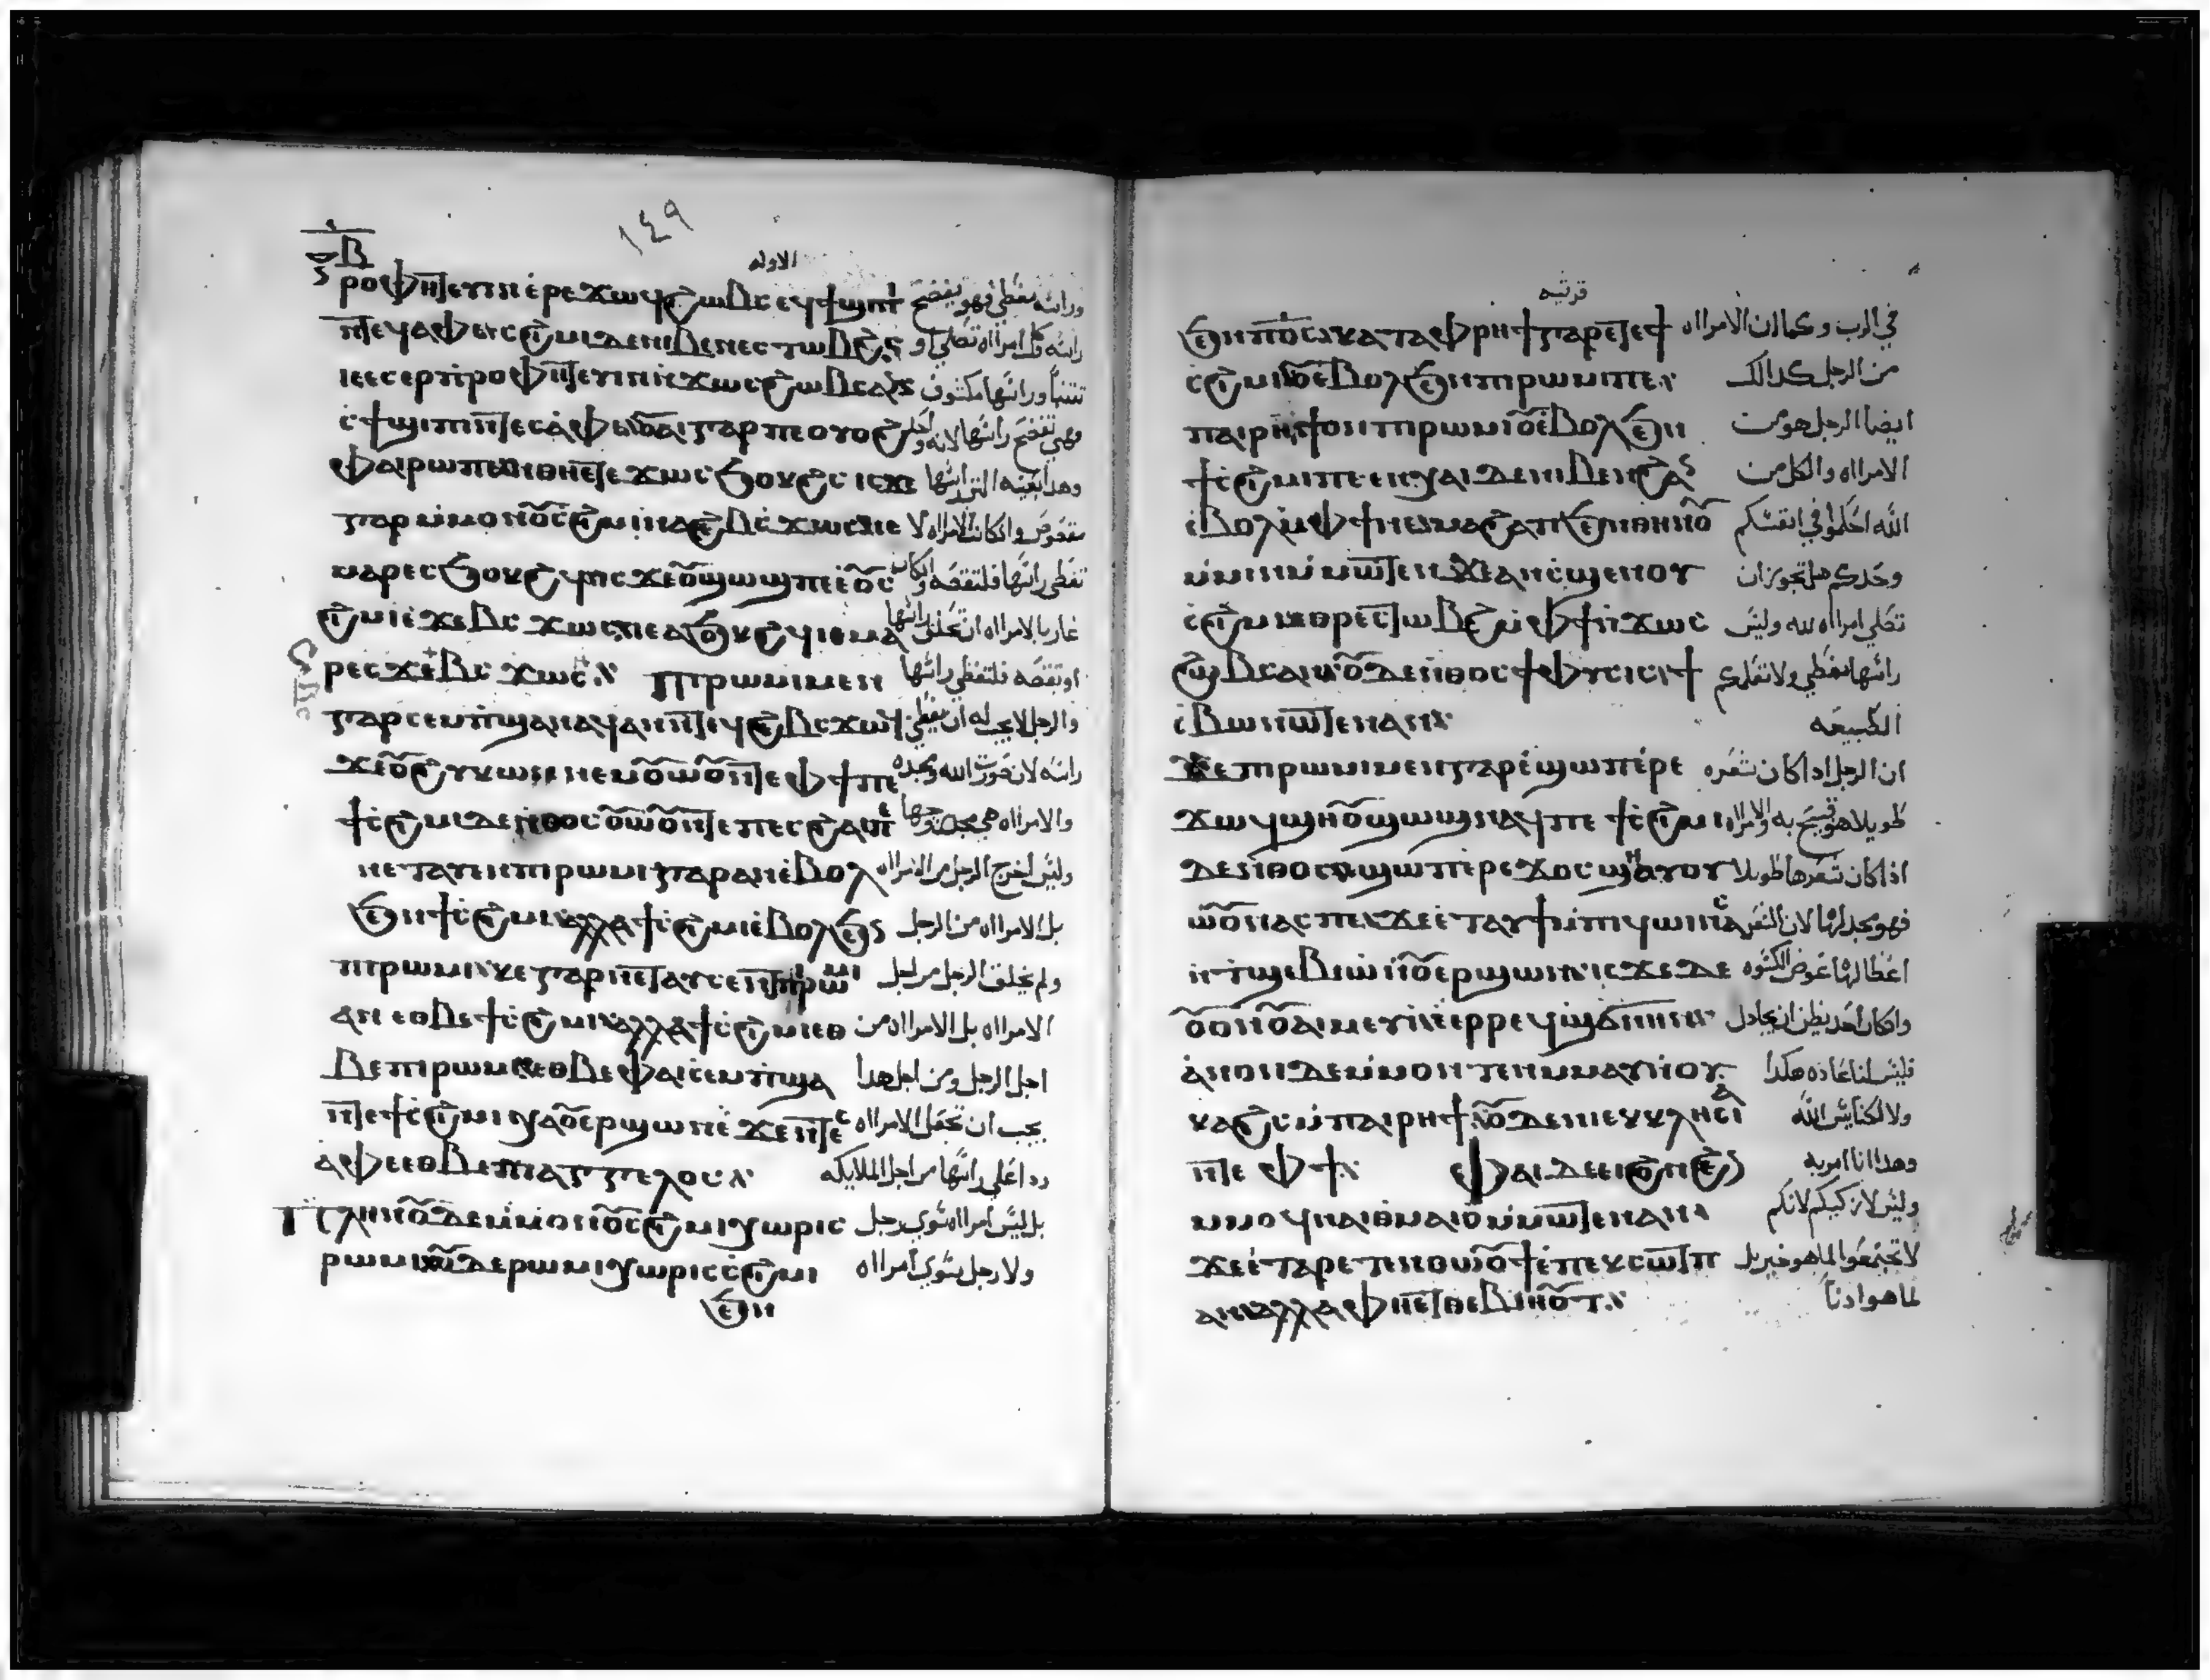 ١٤٩
الاوله
ⲣⲟⲫⲏⲧⲉⲩⲓⲛ ⲉⲣⲉ ϫⲱϥ ϩⲱⲃⲥ ⲉϥϯϣⲓⲡⲓ وراسه مغطي فهو يفضح
ⲛⲧⲉϥⲁⲫⲉ ⲥϩⲓⲙⲓ ⲇⲉ ⲛⲓⲃⲉⲛ ⲉⲥⲧⲱⲃϩ راسه كل امرااه تصلي او
ⲓⲉ ⲉⲥⲉⲣⲡⲣⲟⲫⲏⲧⲉⲩⲓⲛ ϫⲱⲥ ϩⲱⲃⲥ ⲁⲛ تتنبا وراسها مكشوف
ⲥϯϣⲓⲡⲓ ⲛⲧⲉⲥⲁⲫⲉ ⲟⲩⲁⲓ ⲅⲁⲣ ⲡⲉ ⲟⲩⲟϩ فهي تفضح راسها لانه واحد
ⲫⲁⲓ ⲣⲱ ⲡⲉ ⲛⲑⲏ ⲉⲧⲉ ϫⲱⲥ ϧⲟⲩϩⲥ ⲓⲥϫⲉ وهدا بعينه التي راسها
ⲅⲁⲣ ⲙⲙⲟⲛ ⲟⲩⲥϩⲓⲙⲓ ⲛⲁϩⲉⲃⲥ ϫⲱⲥ ⲓⲉ وان كانت الامراه لا
ⲙⲁⲣⲉⲥϧⲟⲩϩϥ ⲓⲥϫⲉ ⲟⲩϣⲱϣ ⲡⲉ ⲉⲟⲩⲥ تغطي راسها فلتقصه وان كان
ϩⲓⲙⲓ ⲉϫⲉⲃⲥ ϫⲱⲥ ⲓⲉ ⲉϧⲟⲩϩϥ ⲓⲉ ⲙⲁ عار بالامرااه ان تحلق راسها
ⲣⲉⲥϩⲉⲃⲥ ϫⲱⲥ ⲡⲓⲣⲱⲙⲓ ⲙⲉⲛ او تقصه فلتغطي راسها
ⲅⲁⲣ ⲥⲉⲙⲡϣⲁ ⲛⲁϥ ⲁⲛ ⲛⲧⲉϥϩⲉⲃⲥ ϫⲱϥ والرجل لا يجب له ان يغطي
ϫⲉ ⲟⲩϩⲩⲕⲱⲛ ⲛⲉⲙ ⲟⲩⲱⲟⲩ ⲛⲧⲉ ⲫϯ ⲡⲉ راسه لان صورت الله ومجده
ϯⲥϩⲓⲙⲓ ⲇⲉ ⲛⲑⲟⲥ ⲟⲩⲱⲟⲩ ⲛⲧⲉ ⲡⲉⲥϩⲁⲓ والامرااه هي مجد زوجها
ⲛⲉⲧⲁⲩⲉⲛ ⲡⲓⲣⲱⲙⲓ ⲅⲁⲣ ⲁⲛ ⲉⲃⲟⲗ وليس اخرج الرجل من الامرااه
ϧⲉⲛ ϯⲥϩⲓⲙⲓ ⲁⲗⲗⲁ ϯⲥϩⲓⲙⲓ ⲉⲃⲟⲗ ϧⲉⲛ بل الامرااه من الرجل
ⲡⲓⲣⲱⲙⲓ ⲕⲉ ⲅⲁⲣ ⲛⲉⲧⲁⲩⲥⲉⲛⲧ ⲡⲓⲣⲱⲙⲓ ولم يخلق الرجل من اجل
ⲁⲛ ⲉⲑⲃⲉ ϯⲥϩⲓⲙⲓ ⲁⲗⲗⲁ ϯⲥϩⲓⲙⲓ ⲉⲑ الامرااه بل الامرااه من
ⲃⲉ ⲡⲓⲣⲱⲙⲓ ⲉⲑⲃⲉ ⲫⲁⲓ ⲥⲉⲙⲡϣⲁ اجل الرجل ومن اجل هدا
ⲛⲧⲉ ϯⲥϩⲓⲙⲓ ⲭⲁ ⲟⲩⲉⲣϣⲱⲛ ⲉϫⲉⲛ ⲧⲉⲥ يجب ان تجعل الامرااه
ⲁⲫⲉ ⲉⲑⲃⲉ ⲛⲓⲁⲅⲅⲉⲗⲟⲥ ردا علي راسها من اجل الملايكه
ⲡⲗⲏⲛ ⲟⲩⲇⲉ ⲙⲙⲟⲛ ⲟⲩⲥϩⲓⲙⲓ ⲭⲱⲣⲓⲥ بل ليس امرااه سوي رجل
ⲣⲱⲙⲓ ⲟⲩⲇⲉ ⲣⲱⲙⲓ ⲭⲱⲣⲓⲥ ⲥϩⲓⲙⲓ ولا رجل سوي امرااه
ϧⲉⲛ
قرنتيه
ϧⲉⲛ ⲡⲟⲥ ⲕⲁⲧⲁ ⲫⲣⲏϯ ⲅⲁⲣ ⲉⲧⲉ ϯ في الرب وكما ان الامرااه
ⲥϩⲓⲙⲓ ⲟⲩⲉⲃⲟⲗ ϧⲉⲛ ⲡⲓⲣⲱⲙⲓ ⲡⲉ من الرجل كدالك
ⲡⲁⲓⲣⲏϯ ⲟⲛ ⲡⲓⲣⲱⲙⲓ ⲟⲩⲉⲃⲟⲗ ϧⲉⲛ ايضا الرجل هو من
ϯⲥϩⲓⲙⲓ ⲡⲉ ⲉⲛⲭⲁⲓ ⲇⲉ ⲛⲓⲃⲉⲛ ϩⲁⲛ الامرااه والكل من
ⲉⲃⲟⲗ ⲙⲫϯ ⲛⲉ ⲙⲁϩⲁⲡ ϧⲉⲛ ⲑⲏⲛⲟⲩ الله احكموا في انفسكم
ⲙⲙⲓⲛ ⲙⲙⲱⲧⲉⲛ ϫⲉ ⲁⲛ ⲥϣⲉ ⲛⲟⲩ وحدكم هل تجوز ان
ⲥϩⲓⲙⲓ ⲉⲑⲣⲉⲥⲧⲱⲃϩ ⲙⲫϯ ϫⲱⲥ تصلي امرااه لله وليس
ϩⲱⲃⲥ ⲁⲛ ⲟⲩⲇⲉ ⲛⲑⲟⲥ ϯⲫⲩⲥⲓⲥ ϯ راسها مغطي ولا تعلمكم
ⲥⲃⲱ ⲛⲱⲧⲉⲛ ⲁⲛ الطبيعه
ϫⲉ ⲡⲓⲣⲱⲙⲓ ⲙⲉⲛ ⲅⲁⲣ ⲉϣⲱⲡ ⲉⲣⲉ ان الرجل ادا كان شعره
ϫⲱϥ ϣⲏⲟⲩ ϣⲱϣ ⲛⲁϥ ⲡⲉ ϯⲥϩⲓⲙⲓ طويلا هو قبيح به والامرااه
ⲇⲉ ⲛⲑⲟⲥ ⲉϣⲱⲡ ⲉⲣⲉ ϫⲱⲥ ادا كان شعرها طويلا
ⲱⲟⲩ ⲛⲁⲥ ⲡⲉ ϫⲉ ⲉⲧⲁⲩϯ ⲙⲡϥⲱⲓ ⲛⲁⲥ فهو مجد لها لان الشعر
ⲛⲧϣⲉⲃⲓⲱ ⲛⲟⲩⲉⲣϣⲱⲛ ⲓⲥϫⲉ ⲇⲉ اعطا لها عوض الكسوه
ⲟⲩⲟⲛ ⲟⲩⲁⲓ ⲙⲉⲩⲓ ⲉⲉⲣⲣⲉϥϣϭⲛⲏⲛ وان كان احد يظن ان يجادل
ⲁⲛⲟⲛ ⲇⲉ ⲙⲙⲟⲛ ⲧⲉⲛ ⲙⲙⲁⲩ ⲛⲟⲩ فليس لنا عاده هكدا
ⲕⲁϩⲥ ⲙⲡⲁⲓⲣⲏϯ ⲟⲩⲇⲉ ⲛⲓⲉⲕⲕⲗⲏⲥⲓⲁ ولا لكنايس الله
ⲛⲧⲉ ⲫϯ ⲫⲁⲓ ⲇⲉ ⲉⲓϩⲟⲛϩⲉⲛ وهدا انا امر به
ⲙⲙⲟϥ ⲛⲁⲓⲑⲙⲁⲓⲟ ⲙⲙⲱⲧⲉⲛ ⲁⲛ وليس لازكيكم لانكم
ϫⲉ ⲉⲧⲁⲣⲉⲧⲉⲛⲑⲱⲟⲩϯ ⲉⲡⲉⲕⲥⲱⲧⲡ لا تجتمعوا لما هو خير بل
ⲁⲛ ⲁⲗⲗⲁ ⲫⲏ ⲉⲧⲑⲉⲃⲓⲏⲟⲩⲧ لما هو ادنا